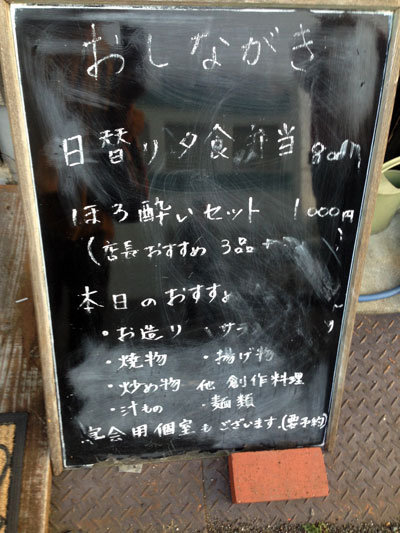 おしながき
日替り夕食弁当 800円
ほろ酔いセット 1000円
(店長おすすめ 3品
本日のおすすめ
・お造り ・サ
・焼物 ・揚げ物
・炒め物 他 創作料理
・汁もの ・麺類
宴会用個室もございます。(要予約)